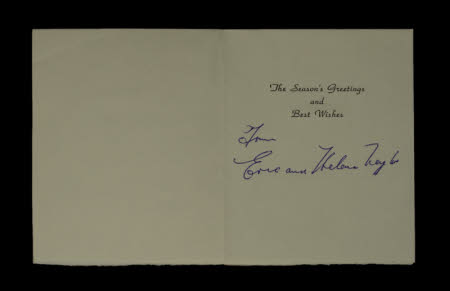 The Season's Greetings
and
Best Wishes
From
Eric and Thelma